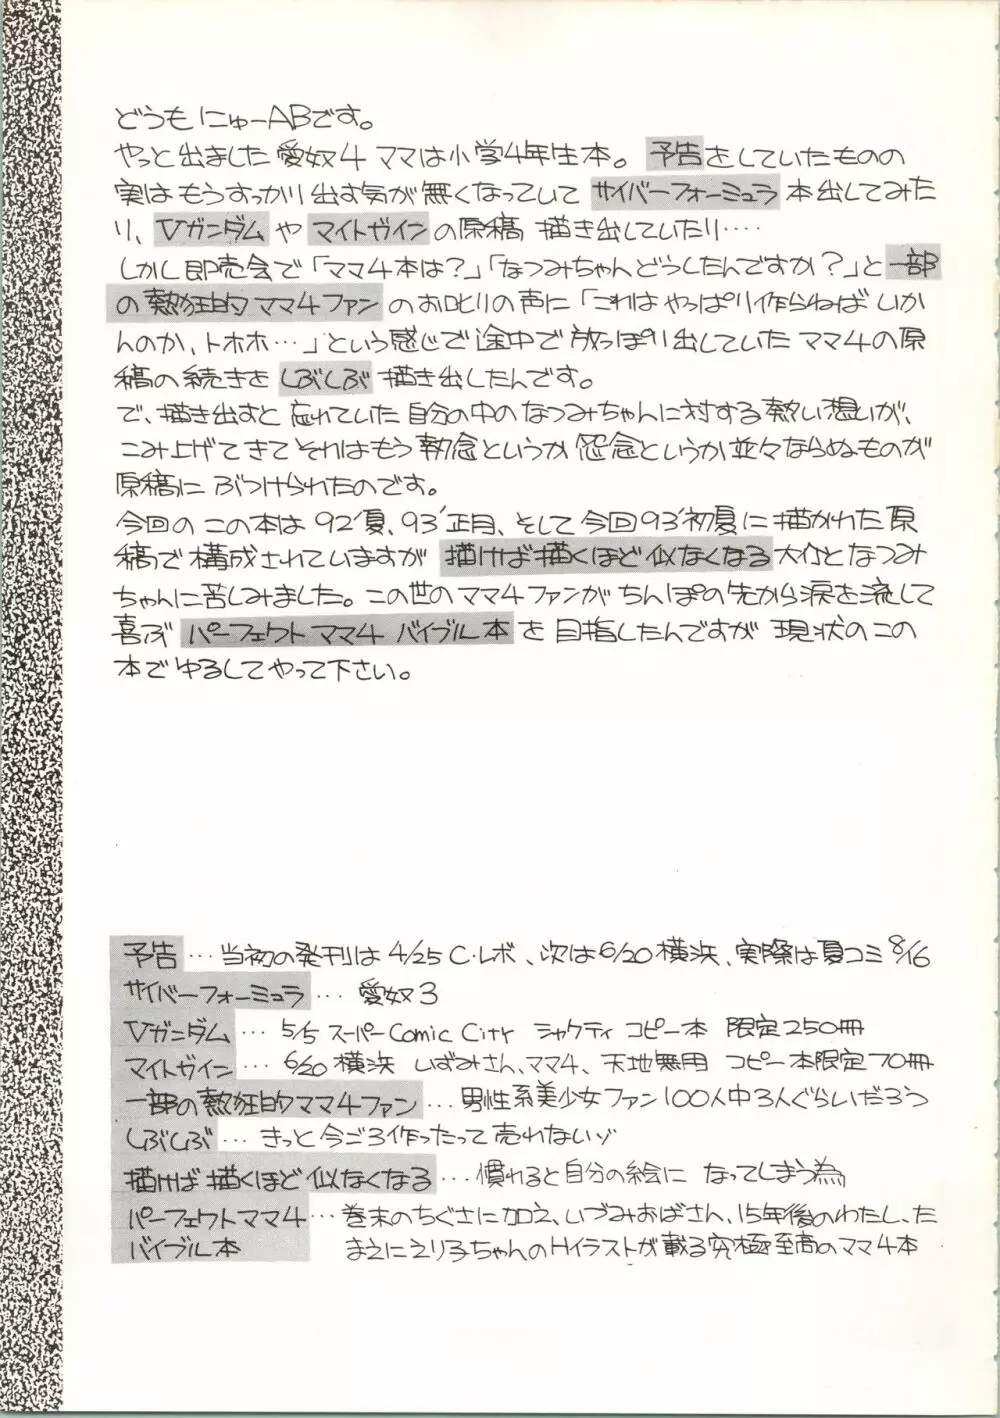 どうもにゅーABです。
やっと出ました愛奴4 ママは小学4年生本。予告をしていたものの
実はもうすっかり出す気が無くなっていてサイバーフォーミュラ本出してみた
り、Vガンダムやマイトガインの原稿描き出していたり‥‥
しかし即売会で「ママ4本は?」「なつみちゃんどうしたんですか?」と一部
の熱狂的ママ4ファンのお叱りの声に「これはやっぱり作らねばいか
んのか、トホホ…」という感じで途中で放っぽり出していたママ4の原
稿の続きをしぶしぶ描き出したんです。
で、描き出すと忘れていた自分の中のなつみちゃんに対する熱い想いが、
こみ上げてきてそれはもう執念というか怨念というか並々ならぬものが
原稿にぶつけられたのです。
今回のこの本は92'夏、93'正月、そして今回93'初夏に描かれた原
稿で構成されていますが描けば描くほど似なくなる大介となつみ
ちゃんに苦しみました。この世のママ4ファンがちんぽの先から涙を流して
喜ぶパーフェクトママ4バイブル本を目指したんですが現状のこの
本でゆるしてやって下さい。
予告…当初の発刊は4/25 C・レボ、次は6/20横浜、実際は夏コミ8/16
サイバーフォーミュラ… 愛奴3
Vガンダム… 5/5 スーパーComic City シャクティ コピー本 限定250冊
マイトガイン… 6/20横浜 いずみさん、ママ4、天地無用 コピー本限定70冊
一部の熱狂的ママ4ファン…男性系美少女ファン100人中3人ぐらいだろう
しぶしぶ…きっと今ごろ作ったって売れないゾ
描けば描くほど似なくなる…慣れると自分の絵になってしまう為
パーフェクトママ4…巻末のちぐさに加え、いづみおばさん、15年後のわたし、た
バイブル本 まえにえり子ちゃんのHイラストが載る究極至高のママ4本